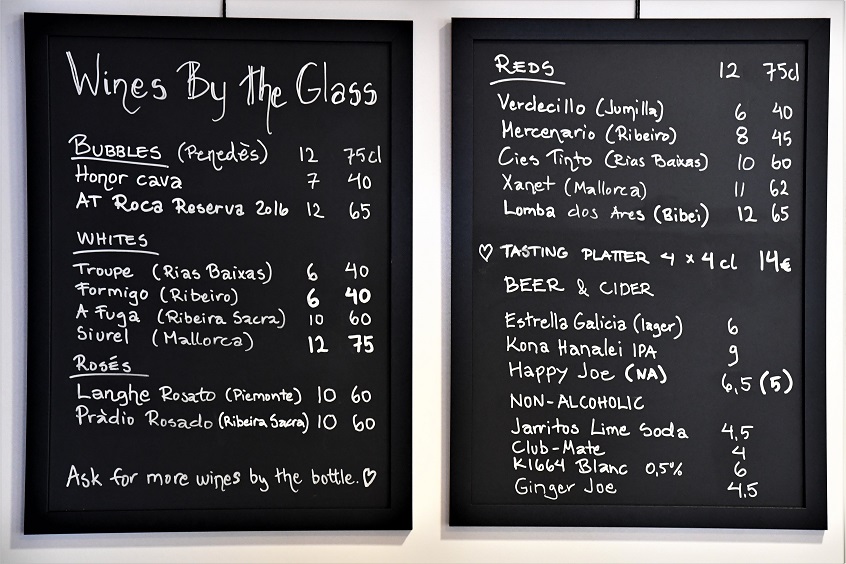 Wines By the Glass
BUBBLES (Penedès) 12 75cl
Honor cava 7 40
AT Roca Reserva 2016 12 65
WHITES
Troupe (Rias Baixas) 6 40
Formigo (Ribeiro) 6 40
A Fuga (Ribeira Sacra) 10 60
Siurel (Mallorca) 12 75
ROSÉS
Langhe Rosato (Piemonte) 10 60
Pràdio Rosado (Ribeira Sacra) 10 60
Ask for more wines by the bottle. ♡
REDS 12 75cl
Verdecillo (Jumilla) 6 40
Mercenario (Ribeiro) 8 45
Cies Tinto (Rias Baixas) 10 60
Xanet (Mallorca) 11 62
Lomba dos Ares (Bibei) 12 65
♡ TASTING PLATTER 4 x 4 cl 14€
BEER & CIDER
Estrella Galicia (lager) 6
Kona Hanalei IPA 9
Happy Joe (NA) 6,5 (5)
NON-ALCOHOLIC
Jarritos Lime Soda 4,5
Club-Mate 4
K1664 Blanc 0,5% 6
Ginger Joe 4,5